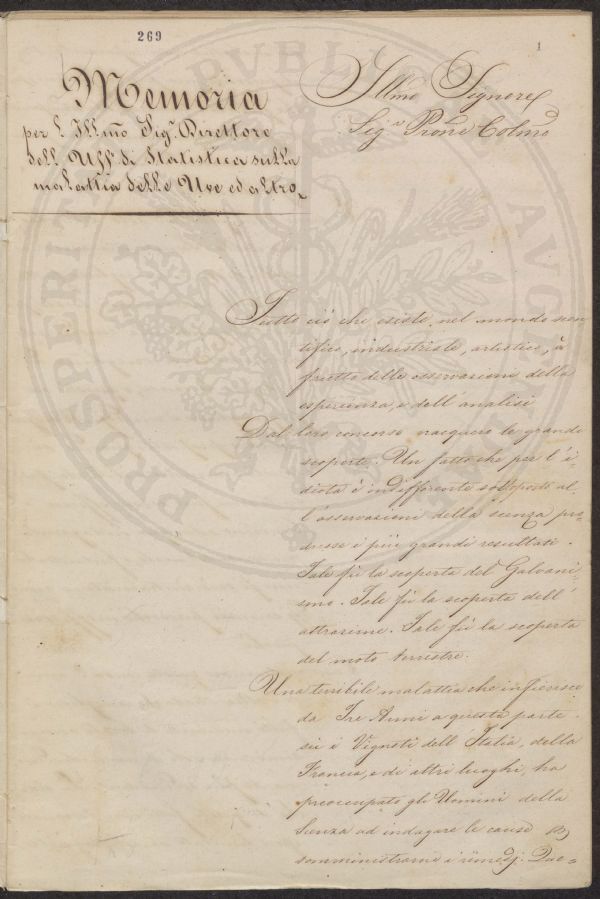 269
1
Memoria
per l'Illmo Sigr. Direttore
dell'Uff. di Statistica sulla
malattia delle Uve ed altro
Illmo Signore
Sigr. Prone Colmo
Tutto ciò che esiste nel mondo scen
tifico, industriale, artistico, è
frutto delle osservazione della
esperienza, e dell'analisi
Dal loro concorso nacquero le grande
scoperte. Un fatto che per l'i=
diota è indifferente sottoposte al
l'osservazioni della scienza pro=
dusse i più grandi resultati.
Tale fù la scoperta del Galvani=
smo. Tale fù la scoperta dell'
attrazione. Tale fù la scoperta
del moto terrestre.
Una terribile malattia che infierisce
da Tre Anni a questa parte
su i Vigneti dell'Italia, della
Francia, e di altri luoghi, ha
preoccupato gli Uomini della
Scienza ad indagare le cause
somministrarne i rimedj. Due=
PROSPERITA PVBLICA AVG